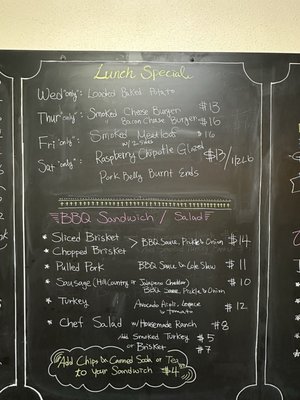 Lunch Special
Wed "only": Loaded Baked Potato
Thur "only": Smoked Cheese Burger $13
Bacon Cheese Burger $16
Fri "only": Smoked Meatloaf $16
w/ 2 sides
Sat "only": Raspberry Chipotle Glazed $13/
Pork Belly Burnt Ends
BBQ Sandwich / Salad
* Sliced Brisket > BBQ Sauce, Pickle & Onion $14
* Chopped Brisket
* Pulled Pork BBQ Sauce & Cole Slaw $11
* Sausage (Hill Country or Jalapeno Cheddar) $10
BBQ Sauce, Pickle & Onion
* Turkey Avocado Aioli, Lettuce $12
& Tomato
* Chef Salad w/ Homemade Ranch $8
Add Smoked Turkey $5
or Brisket $7
Add Chips & Canned Soda or Tea
to your Sandwich $4